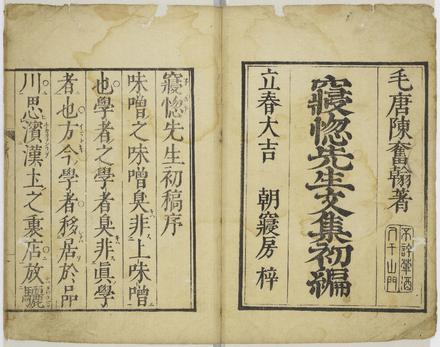 毛唐陳奮翰著
不許葷酒
入于山門
寢惚先生文集初編
立春大吉 朝寢房 梓
寢惚先生初稿序
味噌之味噌臭非上味噌
也學者之學者臭非眞學
者也方今學者移居於品
川思濵漢土之裏店放驪